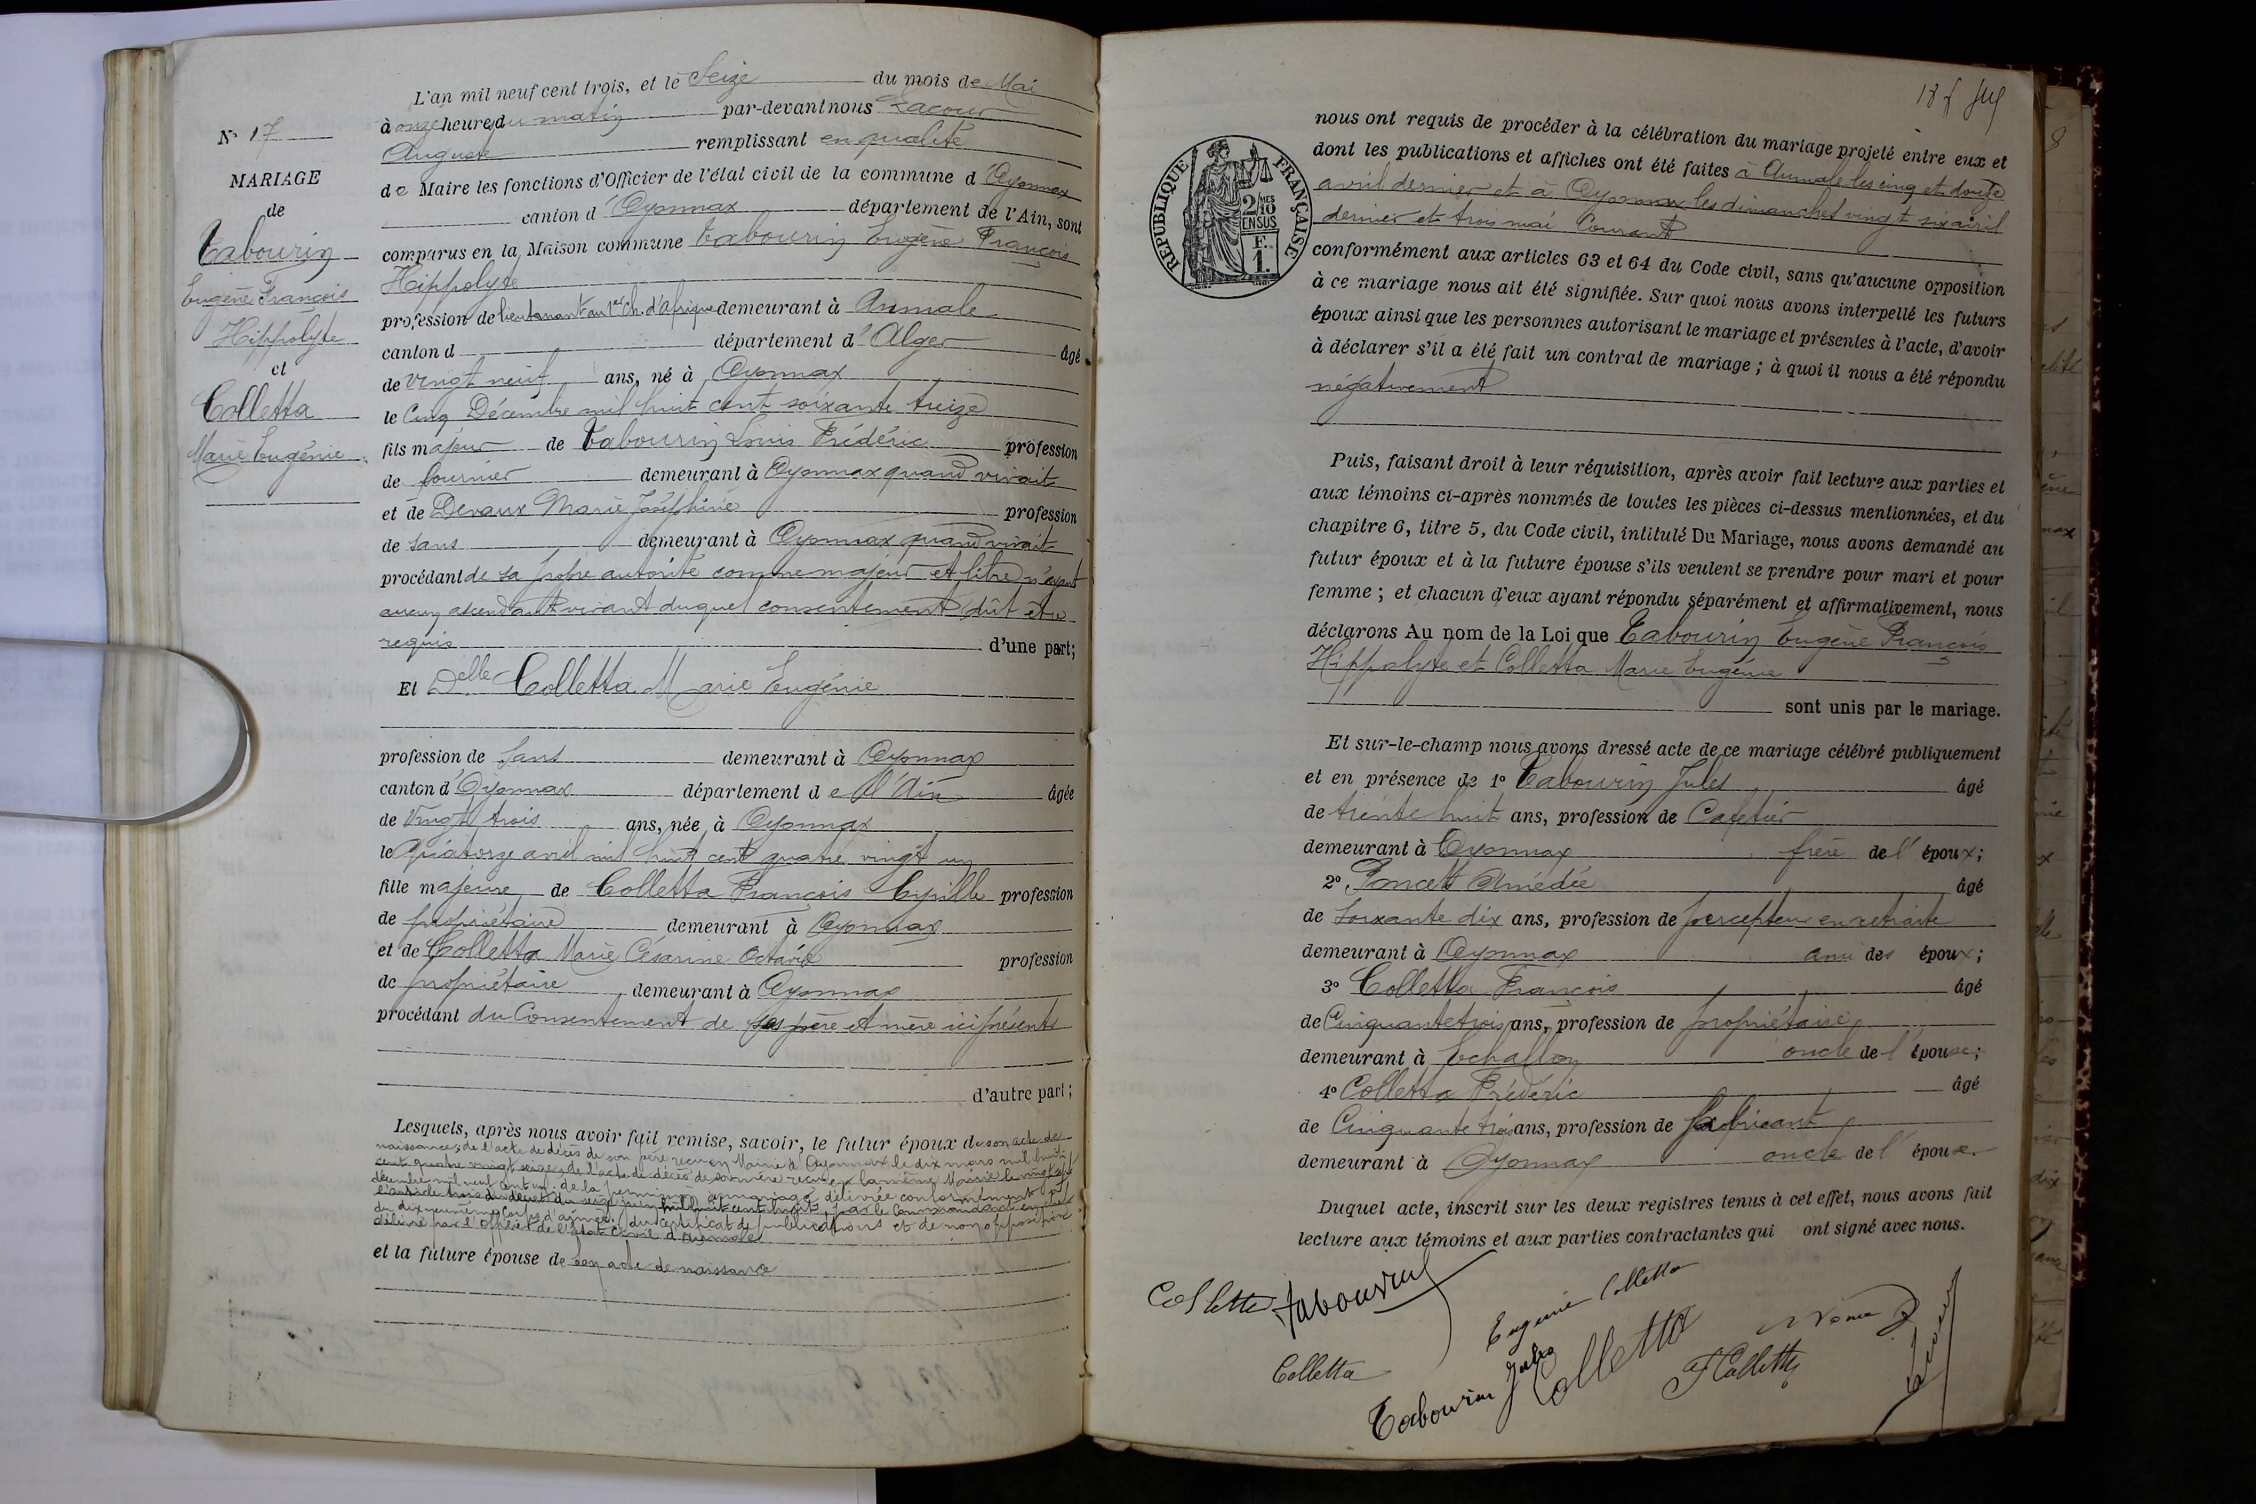 N° 17
MARIAGE
de
Tabourin
Eugène François
Hippolyte
et
Colletta
Marie Eugénie
L'an mil neuf cent trois, et le Seize du mois de Mai
à onze heures du matin par-devant nous Lacour
Auguste remplissant en qualité
de Maire les fonctions d'Officier de l'état civil de la commune d'Oyonnax
canton d'Oyonnax département de l'Ain, sont
comparus en la Maison commune Tabourin Eugène François
Hippolyte
profession de lieutenant au 1er ch. d'afrique demeurant à Aumale
canton d département d'Alger âgé
de vingt neuf ans, né à Oyonnax
le Cinq Décembre mil huit cent soixante treize
fils majeur de Tabourin Louis Frédéric profession
de fournier demeurant à Oyonnax quand vivait
et de Devaux Marie Joséphine profession
de sans demeurant à Oyonnax quand vivait
procédant de sa propre autorité comme majeur et libre n'ayant
aucun ascendant vivant duquel consentement dût être
requis d'une part;
Et Delle Colletta Marie Eugénie
profession de sans demeurant à Oyonnax
canton d'Oyonnax département de l'Ain âgée
de Vingt trois ans, née à Oyonnax
le Quatorze avril mil huit cent quatre vingt un
fille majeure de Colletta François Cyrille profession
de propriétaire demeurant à Oyonnax
et de Colletta Marie Césarine Octavie profession
de propriétaire demeurant à Oyonnax
procédant du Consentement de ses père et mère ici présents
d'autre part;
Lesquels, après nous avoir fait remise, savoir, le futur époux de son acte de
naissance; de l'acte de décès de son père reçu en Mairie d'Oyonnax le dix mars mil huit
cent quatre vingt seize, de l'acte de décès de sa mère reçu en la même Mairie le vingt
décembre mil neuf cent un. de la permission de mariage délivrée conformément à
l'article trois du décret du seize juin mil huit cent huit, par le Commandant en chef
du dix neuvième Corps d'armée. du certificat de publications et de non opposition
délivré par l'Officier de l'état Civil d'Aumale
et la future épouse de son acte de naissance
nous ont requis de procéder à la célébration du mariage projeté entre eux et
dont les publications et affiches ont été faites à Aumale les cinq et douze
avril dernier et à Oyonnax les dimanches vingt six avril
dernier et trois mai Courant
conformément aux articles 63 et 64 du Code civil, sans qu'aucune opposition
à ce mariage nous ait été signifiée. Sur quoi nous avons interpellé les futurs
époux ainsi que les personnes autorisant le mariage et présentes à l'acte, d'avoir
à déclarer s'il a été fait un contrat de mariage; à quoi il nous a été répondu
négativement
Puis, faisant droit à leur réquisition, après avoir fait lecture aux parties et
aux témoins ci-après nommés de toutes les pièces ci-dessus mentionnées, et du
chapitre 6, titre 5, du Code civil, intitulé Du Mariage, nous avons demandé au
futur époux et à la future épouse s'ils veulent se prendre pour mari et pour
femme; et chacun d'eux ayant répondu séparément et affirmativement, nous
déclarons Au nom de la Loi que Tabourin Eugène François
Hippolyte et Colletta Marie Eugénie
sont unis par le mariage.
Et sur-le-champ nous avons dressé acte de ce mariage célébré publiquement
et en présence de 1° Tabourin Jules âgé
de trente huit ans, profession de Cafetier
demeurant à Oyonnax frère de l'époux;
2° Poncet Amédée âgé
de soixante dix ans, profession de percepteur en retraite
demeurant à Oyonnax ami des époux;
3° Colletta François âgé
de Cinquante trois ans, profession de propriétaire
demeurant à Echallon oncle de l'épouse;
4° Colletta Frédéric âgé
de Cinquante trois ans, profession de fabricant
demeurant à Oyonnax oncle de l'épouse.
Duquel acte, inscrit sur les deux registres tenus à cet effet, nous avons fait
lecture aux témoins et aux parties contractantes qui ont signé avec nous.
Colletta Tabourin
Eugénie Colletta
Colletta
Tabourin Jules
Colletta
F Colletta
RÉPUBLIQUE FRANÇAISE
2/10
MES
EN SUS
F.
1.